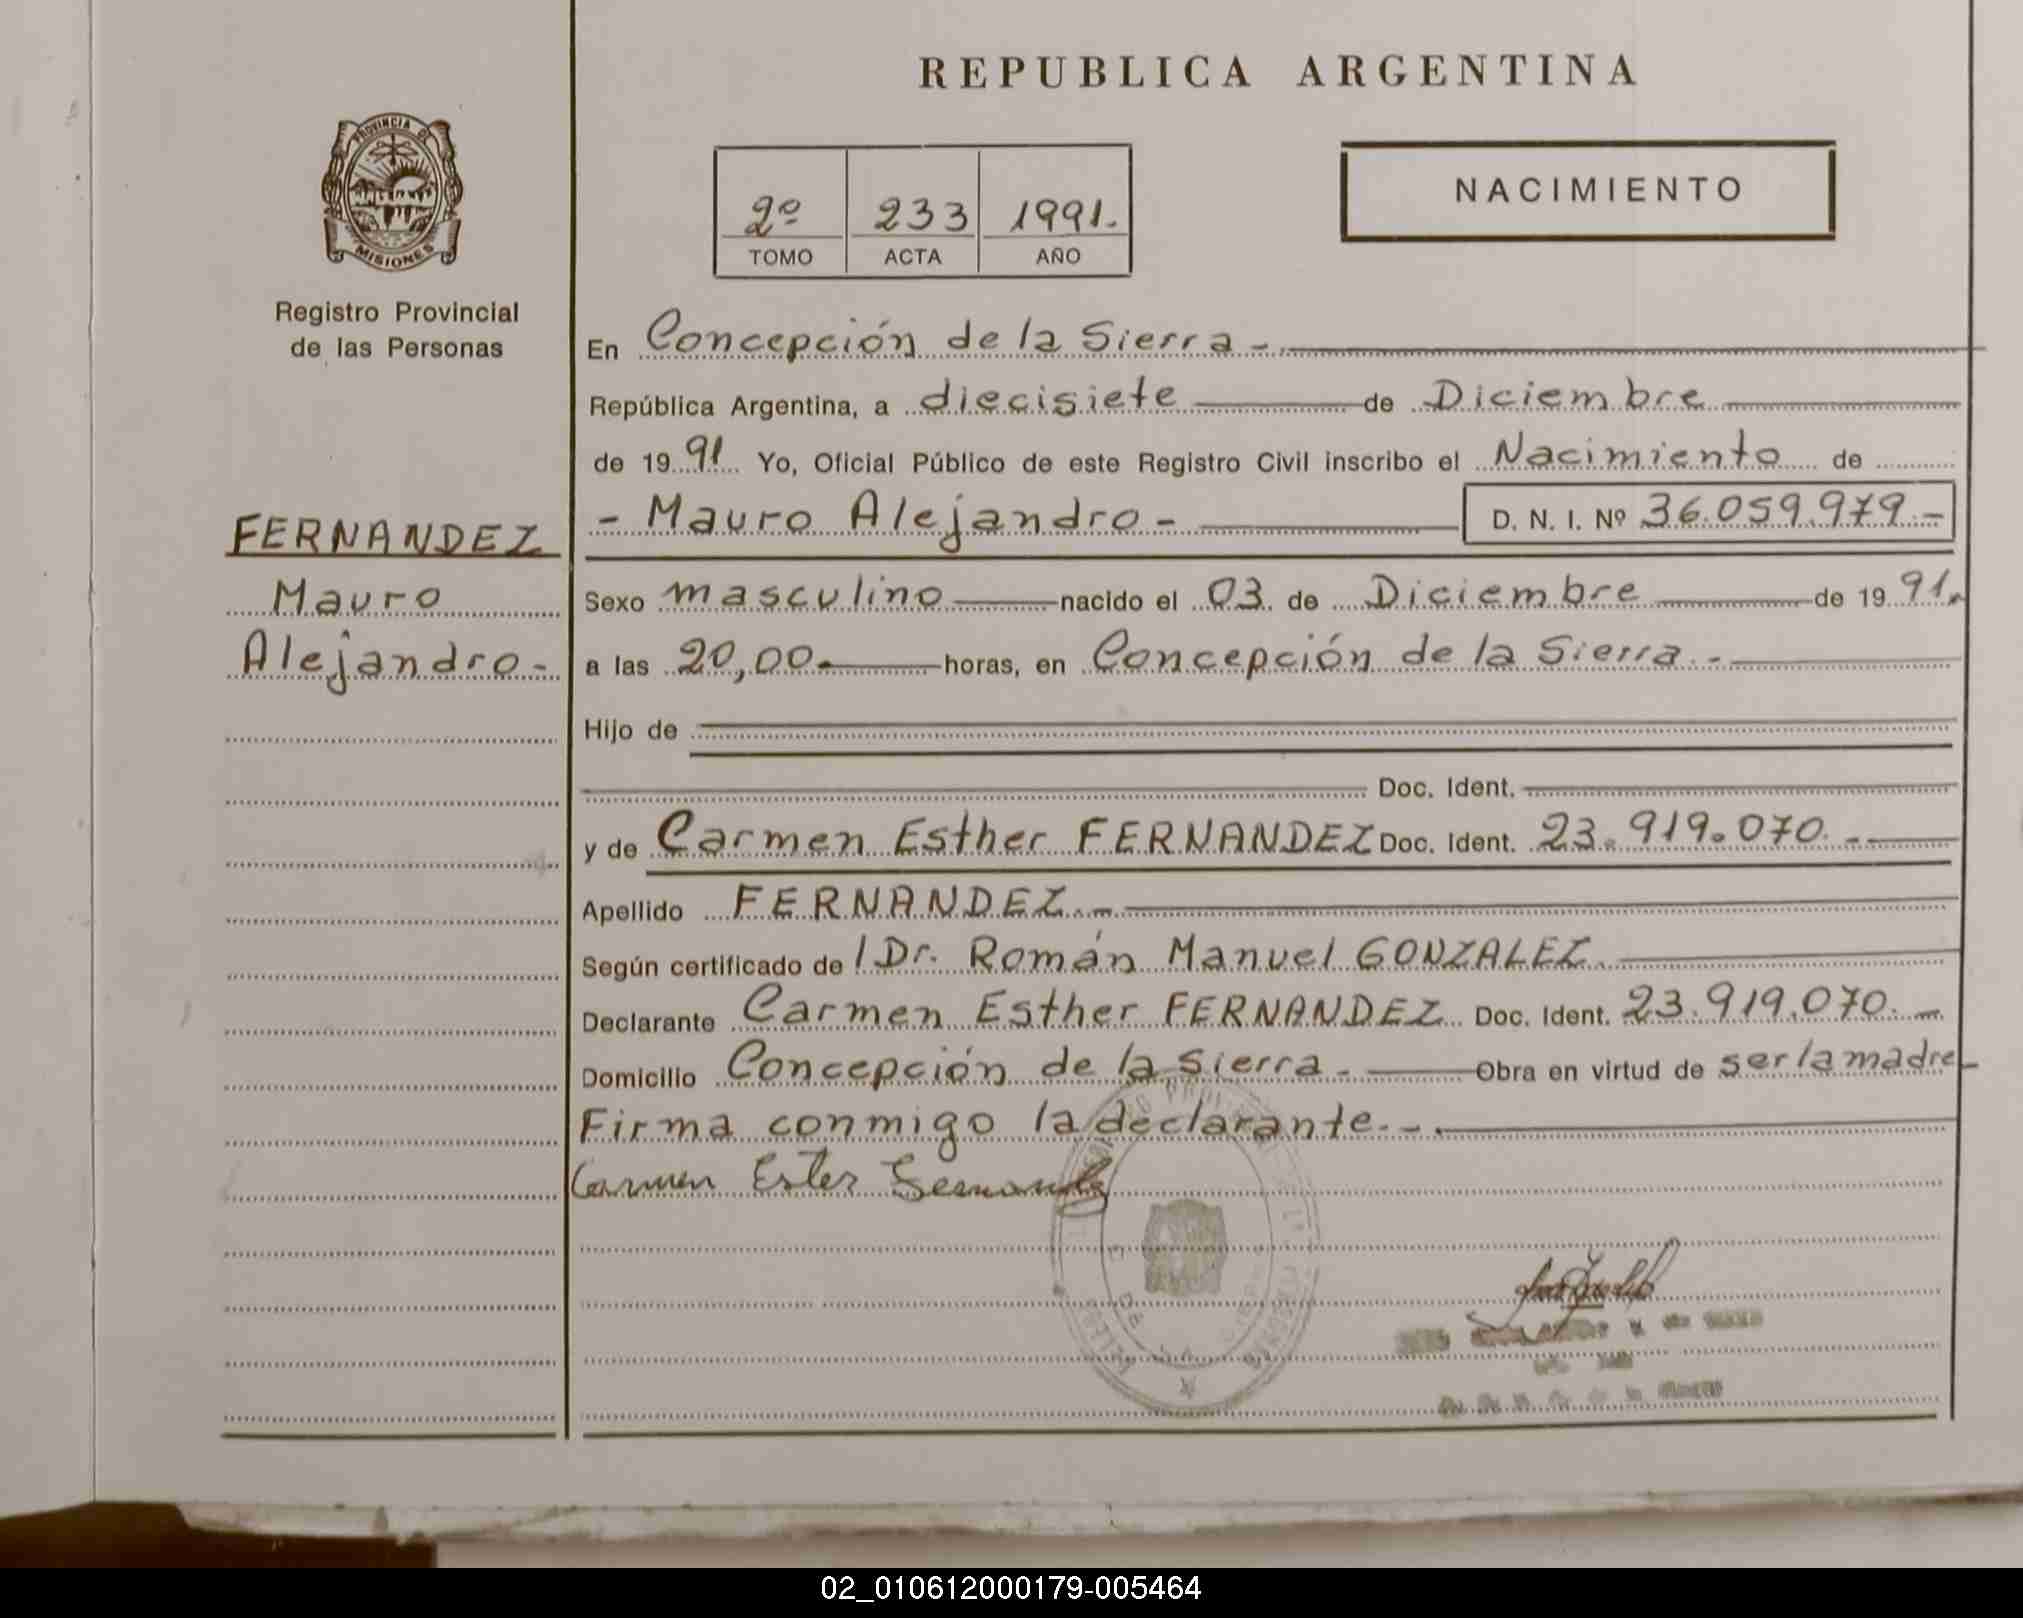 REPUBLICA ARGENTINA
PROVINCIA DE
MISIONES
Registro Provincial
de las Personas
2º 233 1991.
TOMO ACTA AÑO
NACIMIENTO
En Concepción de la Sierra -
República Argentina, a diecisiete de Diciembre
de 19 91 Yo, Oficial Público de este Registro Civil inscribo el Nacimiento de
- Mauro Alejandro - D. N. I. Nº 36.059.979.-
FERNANDEZ
Mauro
Alejandro-
Sexo masculino nacido el 03 de Diciembre de 19 91.
a las 20,00 horas, en Concepción de la Sierra.-
Hijo de
Doc. Ident.
y de Carmen Esther FERNANDEZ Doc. Ident. 23.919.070.-
Apellido FERNANDEZ.-
Según certificado de / Dr. Román Manuel GONZALEZ.
Declarante Carmen Esther FERNANDEZ Doc. Ident. 23.919.070.-
Domicilio Concepción de la Sierra.- Obra en virtud de ser la madre-
Firma conmigo la declarante.-.
Carmen Ester Fernandez
02_010612000179-005464